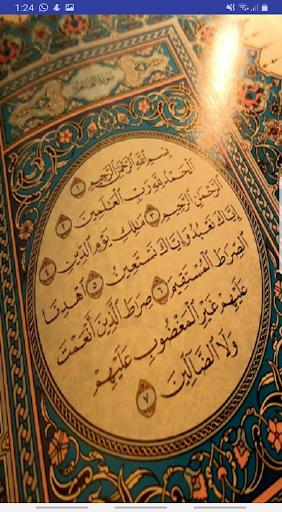 1:24
بِسْمِ ٱللَّهِ ٱلرَّحْمَٰنِ ٱلرَّحِيمِ ١
ٱلْحَمْدُ لِلَّهِ رَبِّ ٱلْعَٰلَمِينَ ٢
ٱلرَّحْمَٰنِ ٱلرَّحِيمِ ٣ مَٰلِكِ يَوْمِ ٱلدِّينِ ٤
إِيَّاكَ نَعْبُدُ وَإِيَّاكَ نَسْتَعِينُ ٥ ٱهْدِنَا
ٱلصِّرَٰطَ ٱلْمُسْتَقِيمَ ٦ صِرَٰطَ ٱلَّذِينَ أَنْعَمْتَ
عَلَيْهِمْ غَيْرِ ٱلْمَغْضُوبِ عَلَيْهِمْ
وَلَا ٱلضَّآلِّينَ ٧